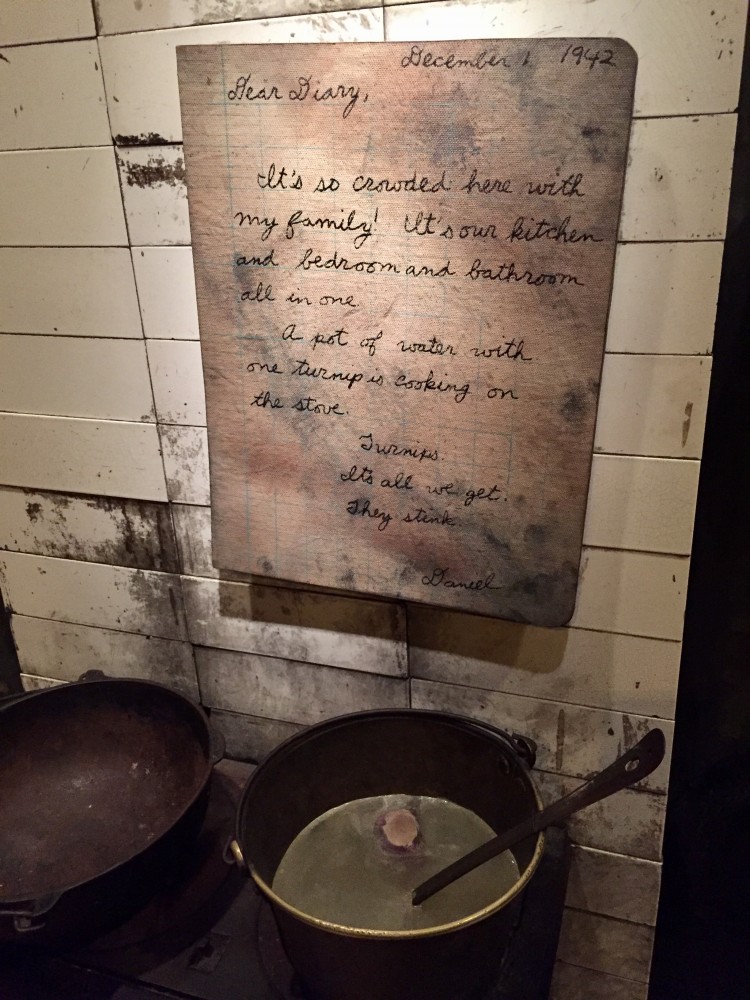 December 1 1942
Dear Diary,
It's so crowded here with
my family! It's our kitchen
and bedroom and bathroom
all in one.
A pot of water with
one turnip is cooking on
the stove.
Turnips.
It's all we get.
They stink.
Daniel